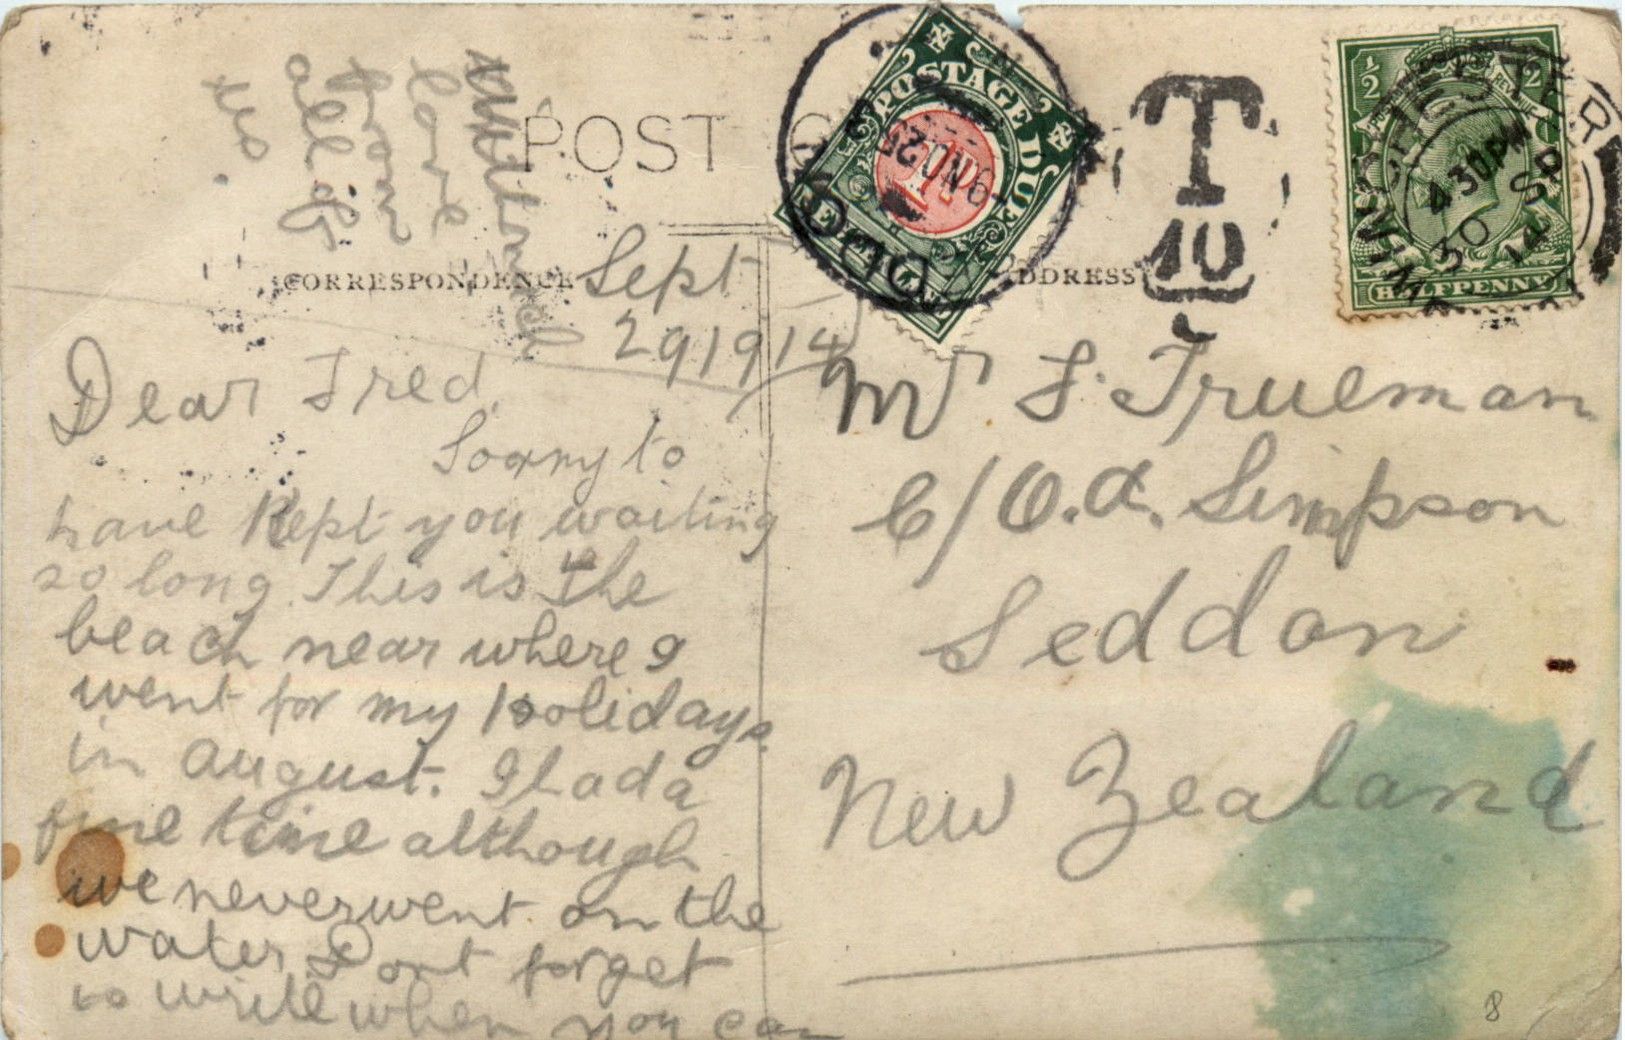 POST
CORRESPONDENCE
ADDRESS
POSTAGE DUE
1D
N Z
T
10
WINCHESTER
4.30 PM
30 SP
14
1/2
HALFPENNY
Sept
29 1914
Dear Fred,
Sorry to
have kept you waiting
so long. This is the
beach near where I
went for my holidays
in August. I had a
fine time although
we never went on the
water Dont forget
to write when you can
love
from
all of
us.
Mr F. Trueman
C/ O.A. Simpson
Seddon
New Zealand
8